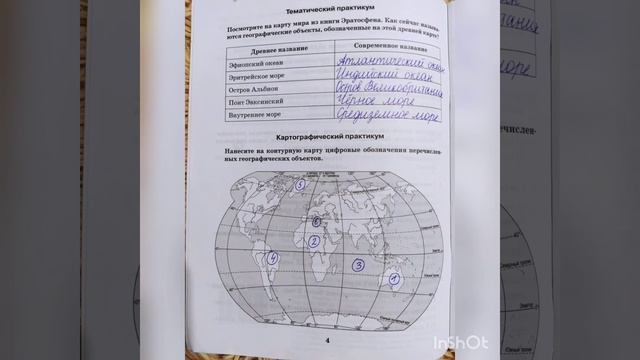 Тематический практикум
Посмотрите на карту мира из книги Эратосфена. Как сейчас называ-
ются географические объекты, обозначенные на этой древней карте?
Древнее название Современное название
Эфиопский океан Атлантический океан
Эритрейское море Индийский океан
Остров Альбион Остров Великобритания
Понт Эвксинский Чёрное море
Внутреннее море Средиземное море
Картографический практикум
Нанесите на контурную карту цифровые обозначения перечислен-
ных географических объектов.
5
6
2
4
3
1
4
InShOt